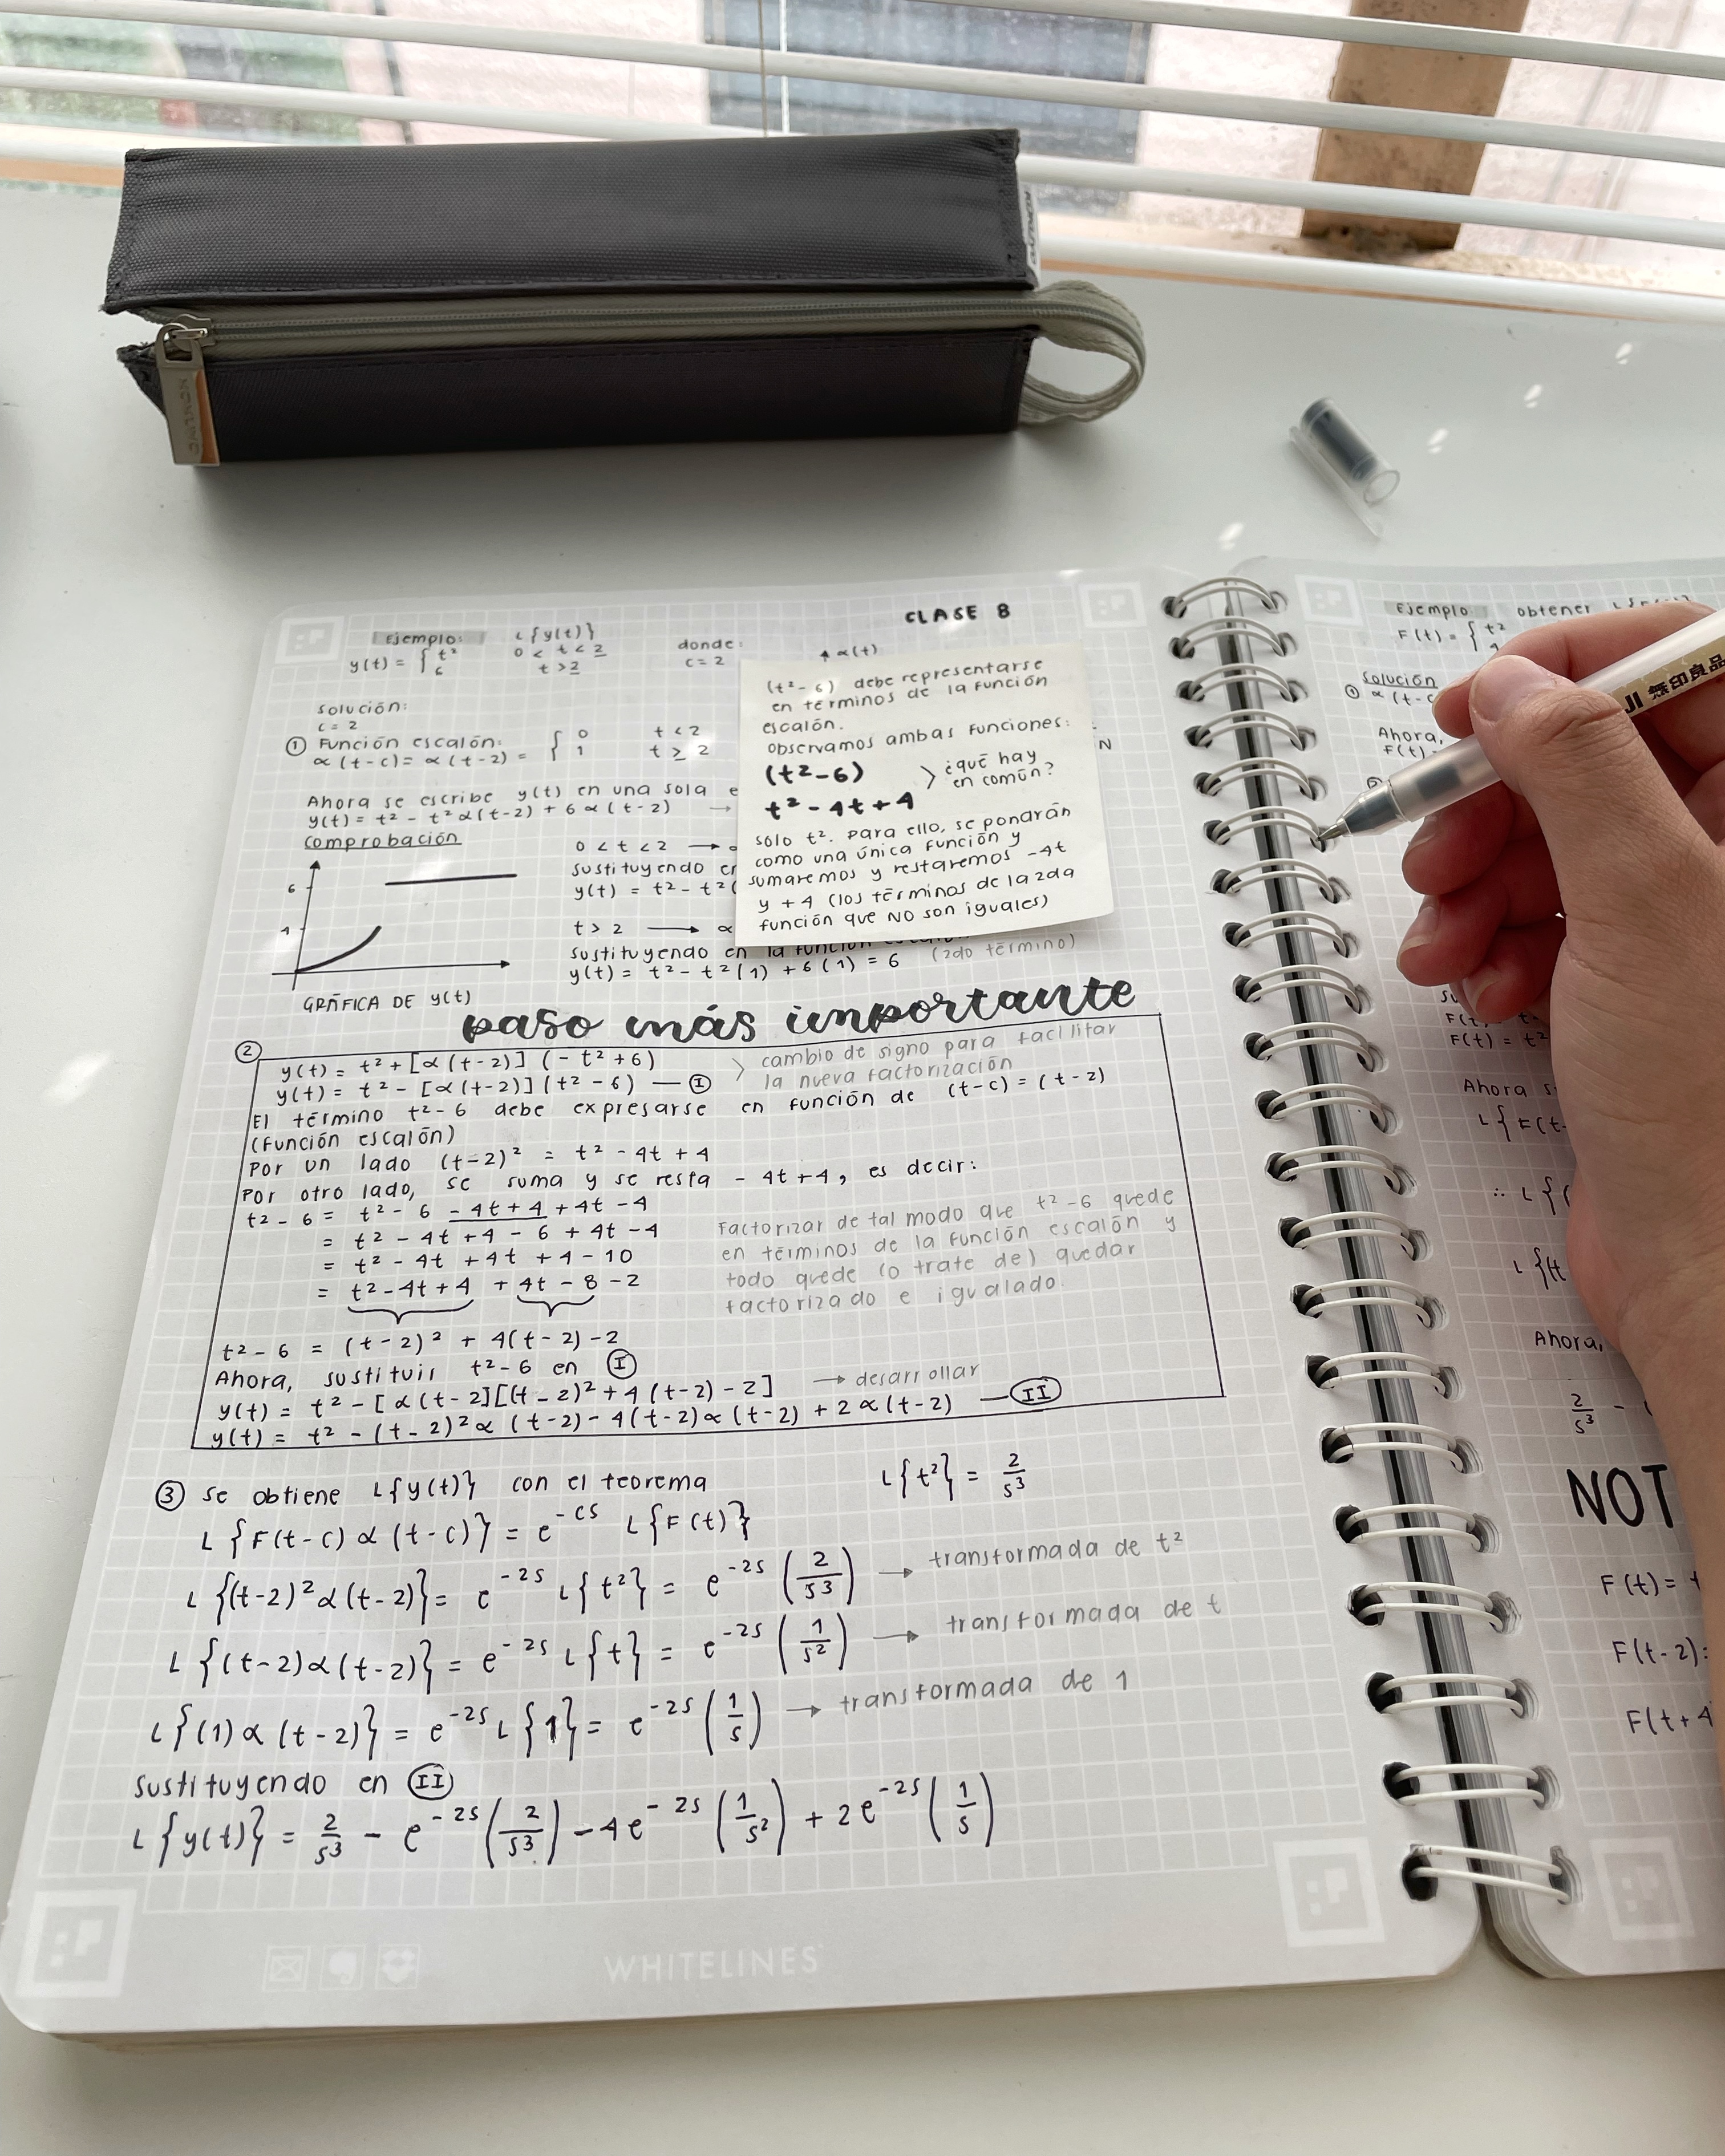 NONLINE
CLASE 8
Ejemplo: L{y(t)} donde:
y(t) = { t² 0 < t < 2 c = 2 ↑ ∝(t)
6 t > 2
solución:
c = 2
① Función escalón: { 0 t < 2
∝ (t-c) = ∝ (t-2) = 1 t ≥ 2
N
Ahora se escribe y(t) en una sola e
y(t) = t² - t² ∝(t-2) + 6 ∝ (t-2) →
comprobación
6
4
GRÁFICA DE y(t)
0 < t < 2 →
sustituyendo en
y(t) = t² - t² (
t > 2 → ∝
sustituyendo en la función
y(t) = t² - t² (1) + 6 (1) = 6 (2do término)
(t² - 6) debe representarse
en términos de la función
escalón.
observamos ambas funciones:
(t² - 6) > ¿qué hay
en común?
t² - 4t + 4
solo t². Para ello, se pondrán
como una única función y
sumaremos y restaremos -4t
y +4 (los términos de la 2da
función que NO son iguales)
paso más importante
②
y(t) = t² + [∝ (t-2)] (-t² + 6) > cambio de signo para facilitar
y(t) = t² - [∝ (t-2)] (t² - 6) — Ⓘ la nueva factorización
El término t² - 6 debe expresarse en función de (t-c) = (t-2)
(función escalón)
Por un lado (t-2)² = t² - 4t + 4
Por otro lado, se suma y se resta - 4t + 4, es decir:
t² - 6 = t² - 6 - 4t + 4 + 4t - 4
= t² - 4t + 4 - 6 + 4t - 4
= t² - 4t + 4t + 4 - 10
= t² - 4t + 4 + 4t - 8 - 2
Factorizar de tal modo que t² - 6 quede
en términos de la función escalón y
todo quede (o trate de) quedar
factorizado e igualado.
t² - 6 = (t - 2)² + 4(t - 2) - 2
Ahora, sustituir t² - 6 en Ⓘ
y(t) = t² - [∝ (t-2][(t-2)² + 4 (t-2) - 2] → desarrollar
y(t) = t² - (t-2)² ∝ (t-2) - 4(t-2) ∝ (t-2) + 2 ∝ (t-2) — (II)
③ se obtiene L{y(t)} con el teorema L{t²} = 2/s³
L {F(t-c) ∝ (t-c)} = e^-cs L{F(t)}
L {(t-2)² ∝ (t-2)} = e^-2s L{t²} = e^-2s (2/s³) → transformada de t²
L {(t-2) ∝ (t-2)} = e^-2s L{t} = e^-2s (1/s²) → transformada de t
L {(1) ∝ (t-2)} = e^-2s L {1} = e^-2s (1/s) → transformada de 1
sustituyendo en (II)
L {y(t)} = 2/s³ - e^-2s (2/s³) - 4e^-2s (1/s²) + 2e^-2s (1/s)
WHITELINES
Ejemplo: obtener
F(t) = { t²
solución
① ∝ (t-c
Ahora,
F(t) =
F(t) = t²
Ahora s
L { F(t-
∴ L {
L {(t
Ahora,
2/s³ -
NOT
F(t) =
F(t-2) =
F(t+4
無印良品